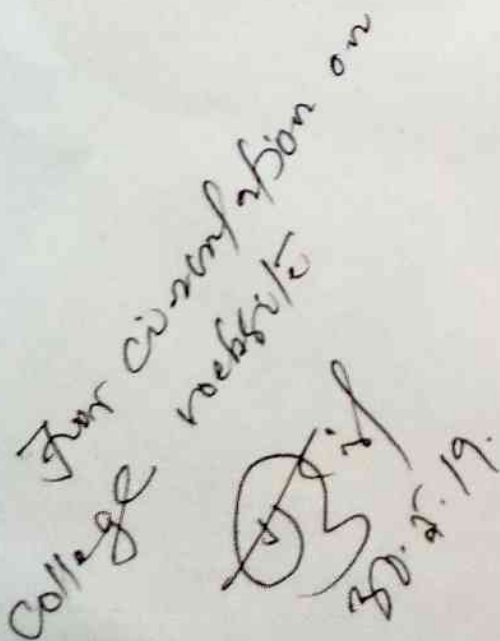 For circulation on
college website
30.5.19.